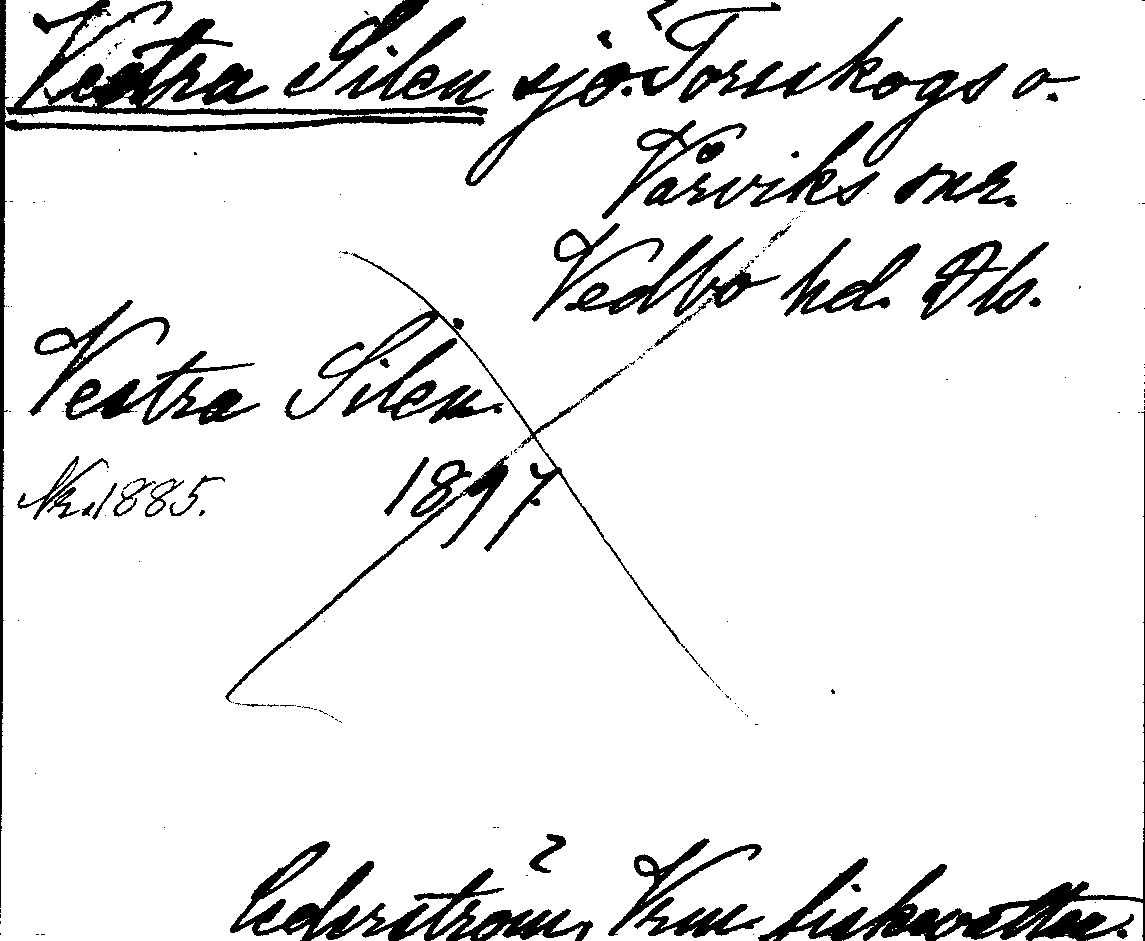 Vestra Silen sjö. Torrskogs o.
Vårviks snr.
Vedbo hd. Dls.
Vestra Silen.
Nr. 1885. 1897.
Cederström, Vrm. fiskevatten.